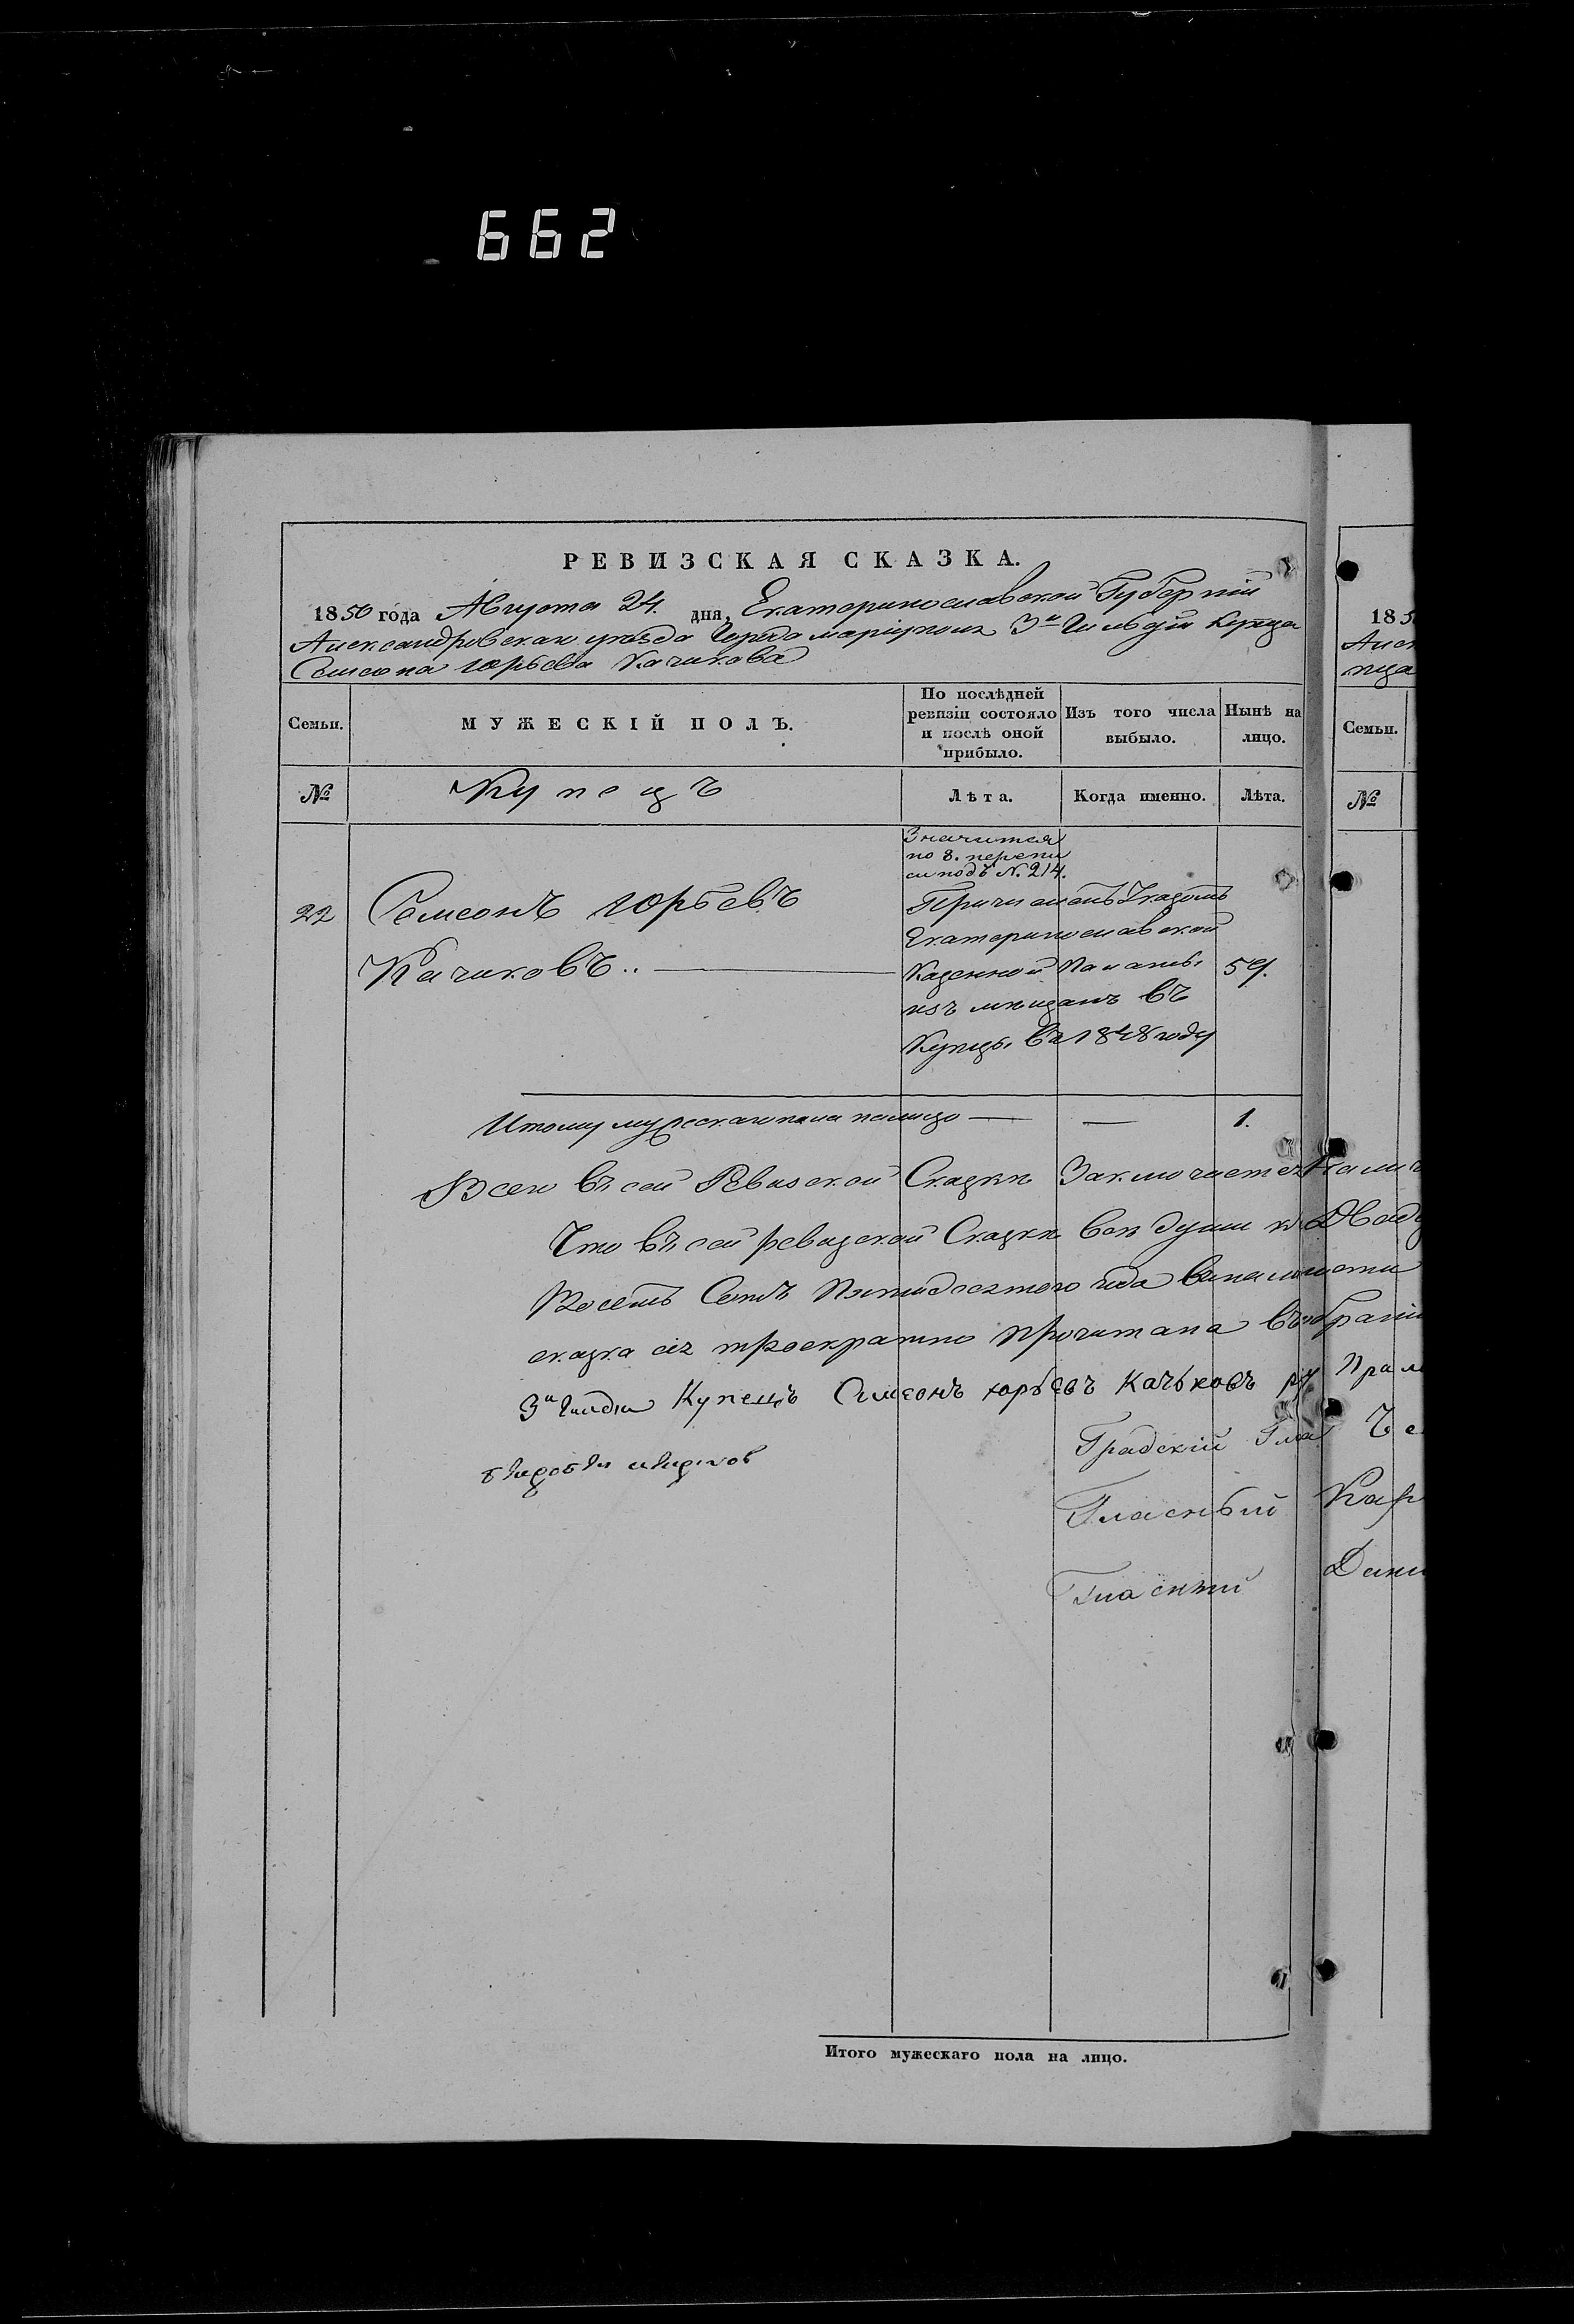 662
РЕВИЗСКАЯ СКАЗКА.
1850 года Августа 24. дня, Екатеринославской Губерніи
Александровскаго уѣзда Города маріуполя 3й Гильдіи купца
Семеона Юрьева Качикова
Семьи.
МУЖЕСКІЙ ПОЛЪ.
По послѣдней ревизіи состояло и послѣ оной прибыло.
Изъ того числа выбыло.
Нынѣ на лицо.
№
Купецъ
Лѣта.
Когда именно.
Лѣта.
Значится
по 8. перепи
си подъ N. 214.
22 Семеонъ Юрьевъ
Причисленъ Указомъ
Екатеринославской
Качиковъ.. Казенной Палаты 59.
изъ мѣщанъ въ
Купцы въ 1848 году
Итому мужескаго пола налицо — — 1.
Всего въ сей Ревизской Сказкѣ Заключается Налич
Что въ сей ревизской Сказкѣ всѣ души Двад
Восемь Сотъ Пятидесятого года
сказка сія троекратно прочитана
3й Гилдіи Купецъ Симеонъ юрьевъ Качьковъ ру
Градскій Гла
Гласный
Гласный
Итого мужескаго пола на лицо.
185
Алек
пца
Семьи.
№
Прил
Че
Кар
Дани